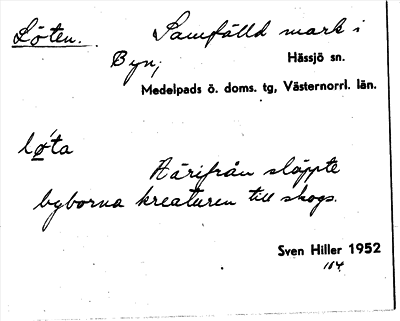 Löten. Samfälld mark i
Byn, Hässjö sn.
Medelpads ö. doms. tg, Västernorrl. län.
lø'ta
Härifrån släppte
byborna kreaturen till skogs.
Sven Hiller 1952
164